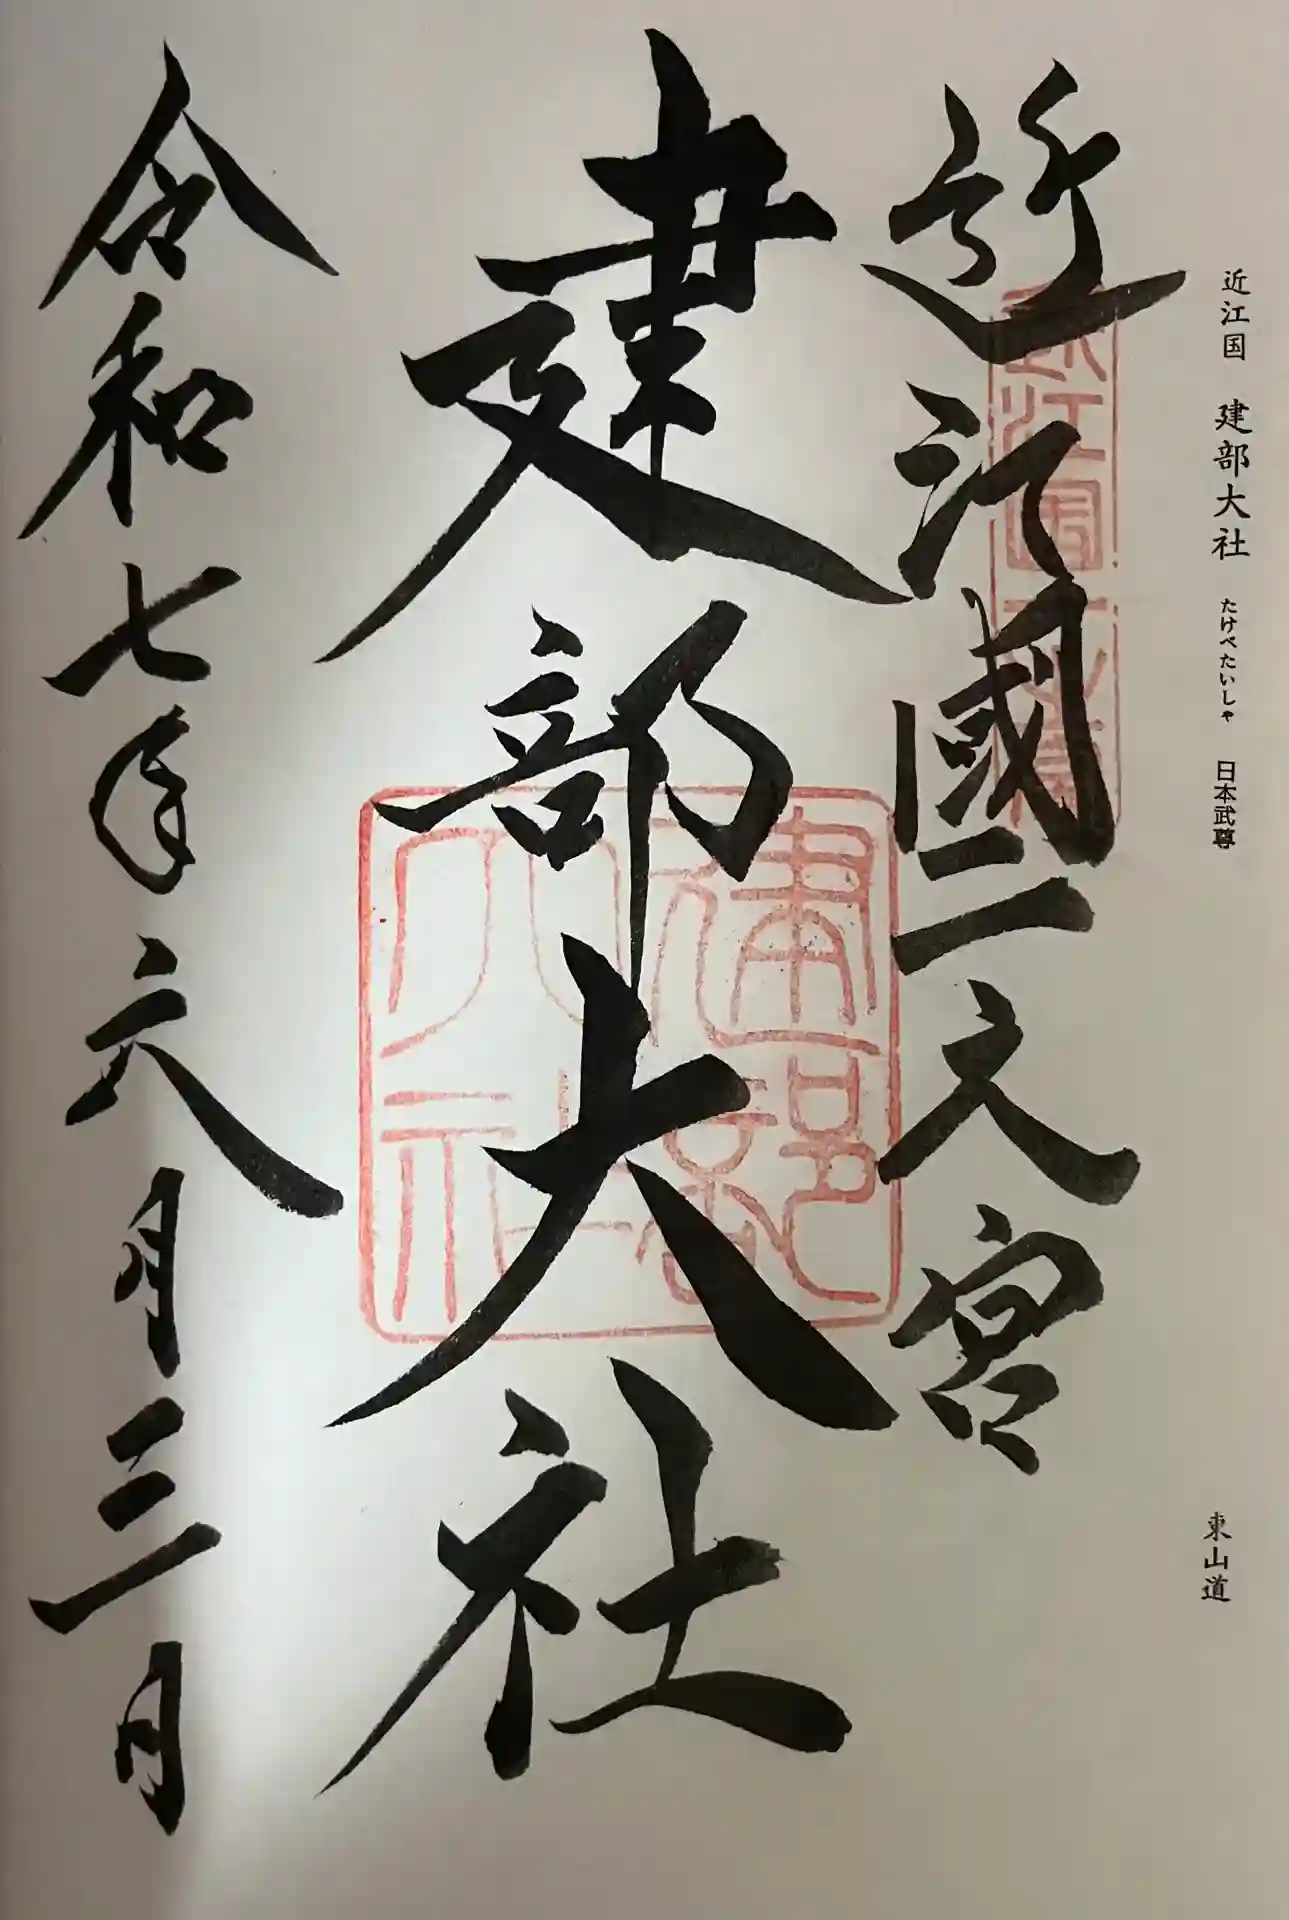 近江国 建部大社 たけべたいしゃ 日本武尊
東山道
近江國一之宮
近江国一之宮
建部大社
建部大社
令和七年六月三日